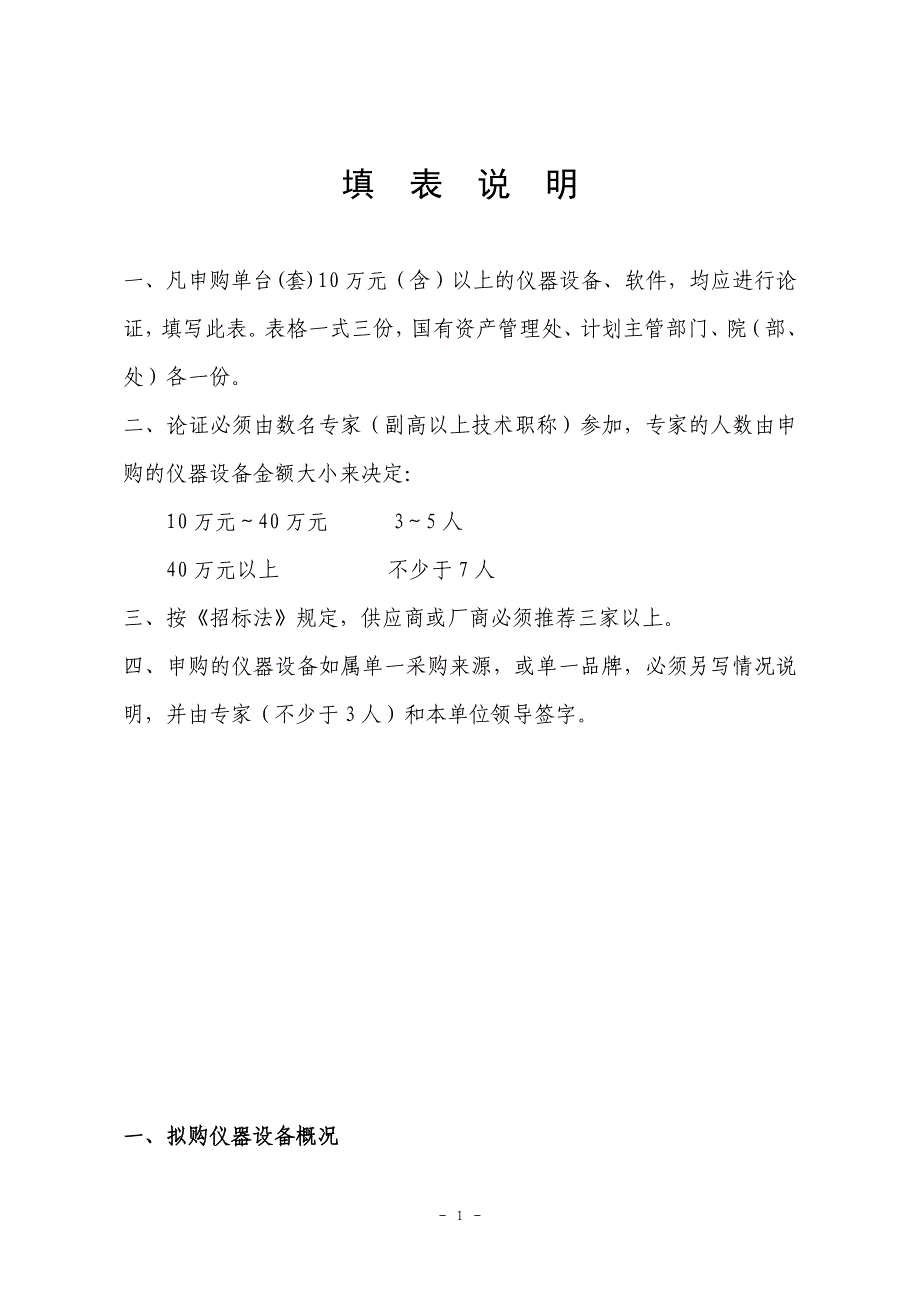 填 表 说 明
一、凡申购单台(套)10万元（含）以上的仪器设备、软件，均应进行论
证，填写此表。表格一式三份，国有资产管理处、计划主管部门、院（部、
处）各一份。
二、论证必须由数名专家（副高以上技术职称）参加，专家的人数由申
购的仪器设备金额大小来决定：
10万元～40万元 3～5人
40万元以上 不少于7人
三、按《招标法》规定，供应商或厂商必须推荐三家以上。
四、申购的仪器设备如属单一采购来源，或单一品牌，必须另写情况说
明，并由专家（不少于3人）和本单位领导签字。
一、拟购仪器设备概况
- 1 -